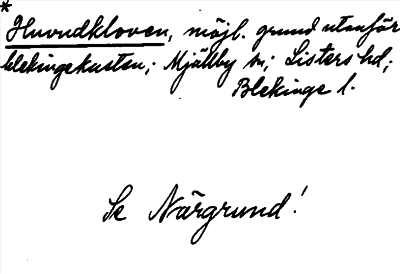 *
Huvudkloven, möjl. grund utanför
blekingekusten; Mjällby sn; Listers hd;
Blekinge l.
Se Närgrund!